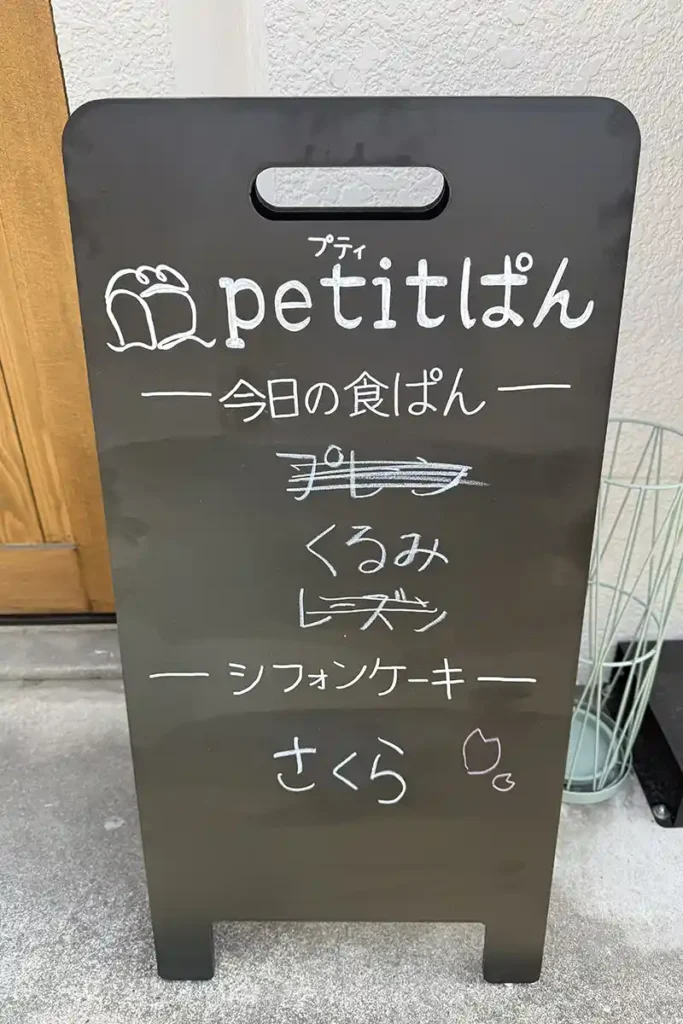 プティ
petitぱん
今日の食ぱん
プレーン
くるみ
レーズン
シフォンケーキ
さくら